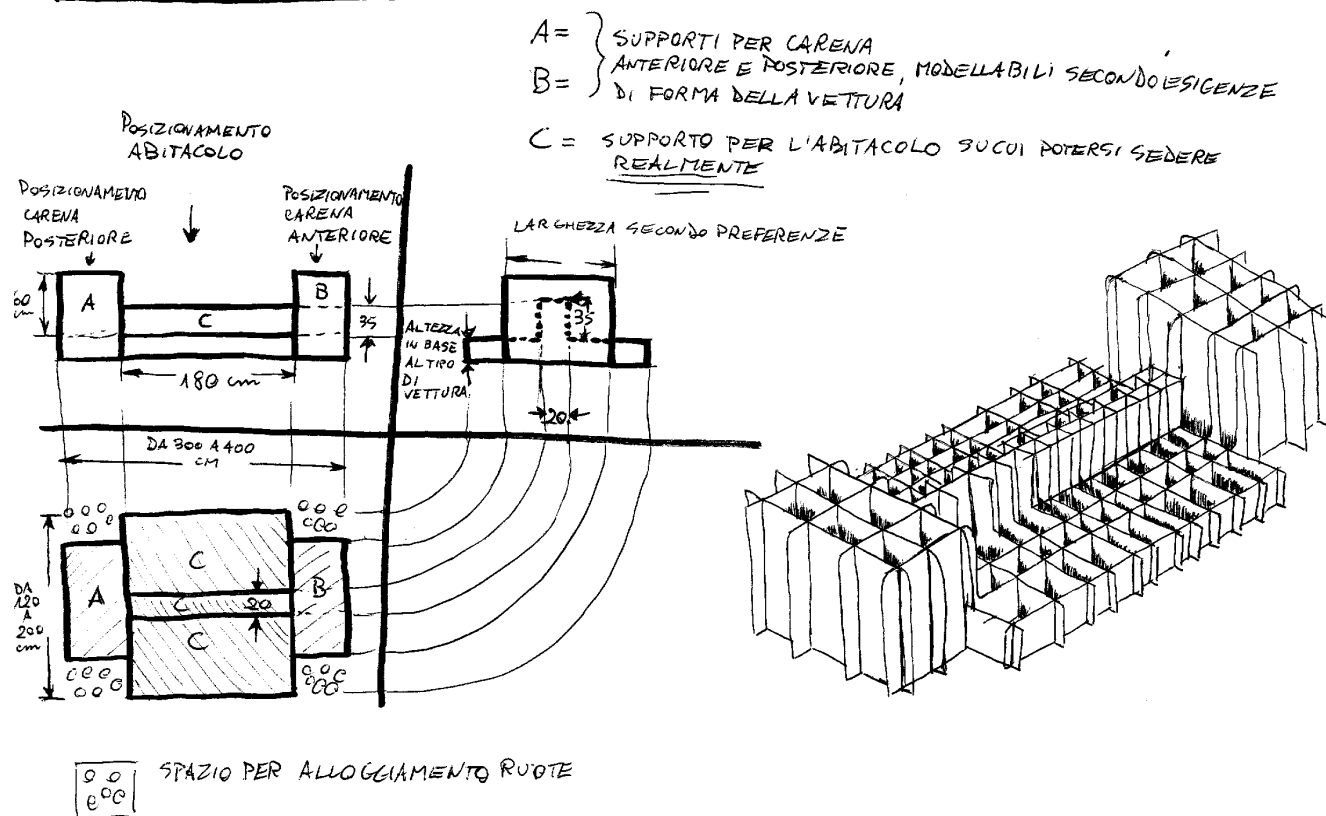 A=
SUPPORTI PER CARENA
ANTERIORE E POSTERIORE, MODELLABILI SECONDO ESIGENZE
B=
DI FORMA DELLA VETTURA
C = SUPPORTO PER L'ABITACOLO SU CUI POTERSI SEDERE
REALMENTE
POSIZIONAMENTO
ABITACOLO
POSIZIONAMENTO
CARENA
POSTERIORE
POSIZIONAMENTO
CARENA
ANTERIORE
LARGHEZZA SECONDO PREFERENZE
A
B
C
60
cm
35
180 cm
ALTEZZA
IN BASE
AL TIPO
DI
VETTURA
35
20
DA 300 A 400
CM
DA
120
A
200
cm
A
C
C
20
B
C
SPAZIO PER ALLOGGIAMENTO RUOTE